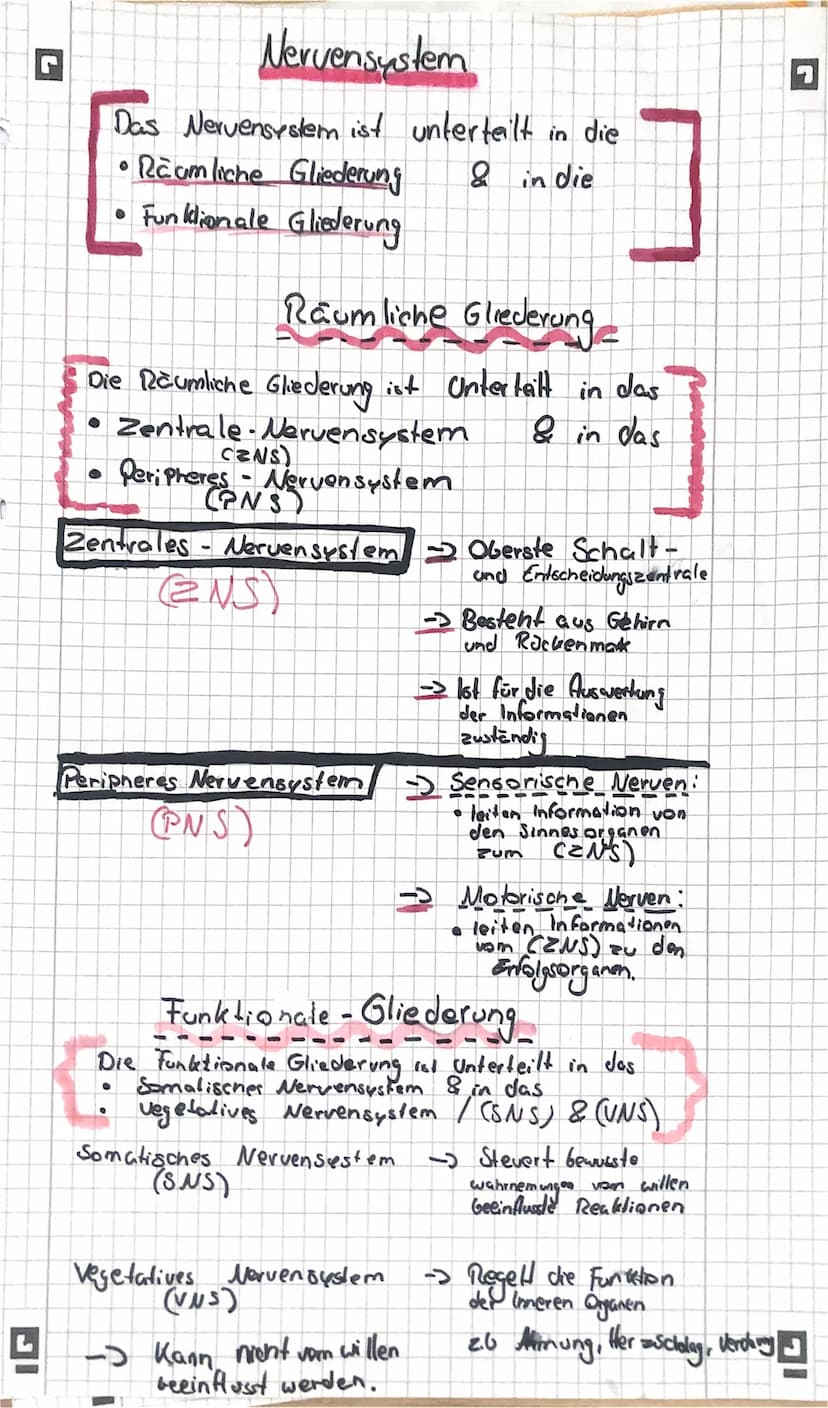 Nervensystem
Das Nervensystem ist unterteilt in die
• Räumliche Gliederung & in die
• Funktionale Gliederung
Räumliche Gliederung
Die Räumliche Gliederung ist Unterteilt in das
• Zentrale-Nervensystem & in das
(ZNS)
• Peripheres - Nervensystem
(PNS)
Zentrales - Nervensystem → Oberste Schalt-
und Entscheidungszentrale
(ZNS)
→ Besteht aus Gehirn
und Rückenmark
→ Ist für die Auswertung
der Informationen
zuständig
Peripheres Nervensystem → Sensorische Nerven:
(PNS)
• leiten Information von
den Sinnesorganen
zum (ZNS)
→ Motorische Nerven:
• leiten Informationen
vom (ZNS) zu den
Erfolgsorganen.
Funktionale - Gliederung
Die Funktionale Gliederung ist Unterteilt in das
• Somatisches Nervensystem & in das
• Vegetatives Nervensystem / (SNS) & (VNS)
Somatisches Nervensystem → Steuert bewusste
(SNS)
wahrnemungen vom willen
beeinflusste Reaktionen
Vegetatives Nervensystem → Regelt die Funktion
(VNS)
der Inneren Organen
z.b Atmung, Herzschlag, Verdaung
→ Kann nicht vom willen
beeinflusst werden.